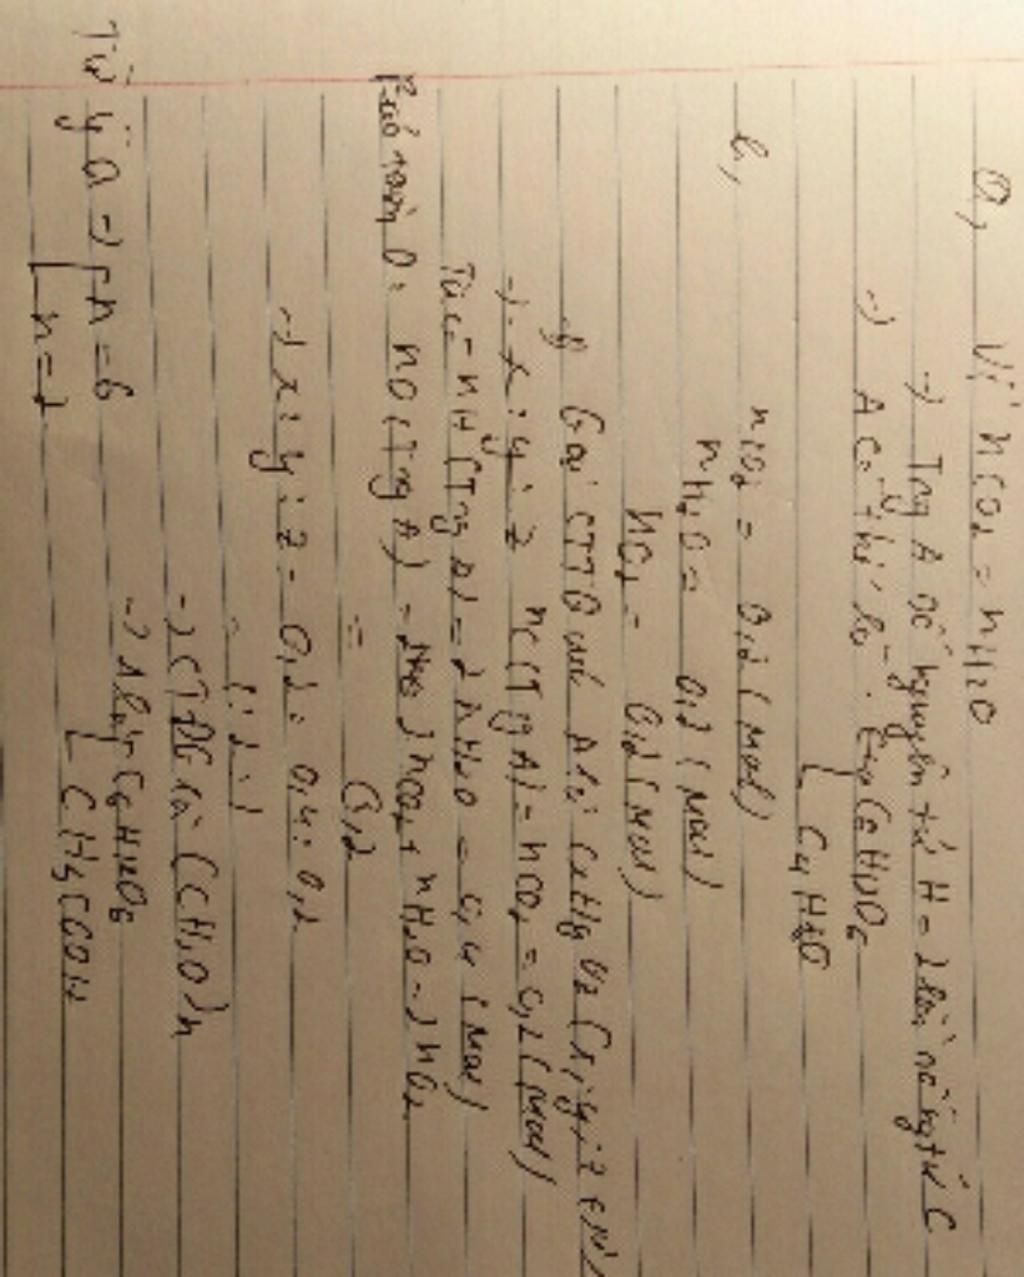 a, Vì nCO₂ = nH₂O
→ Trog A số nguyên tử H = 2 lần số ngtử C
→ A có thể là: C₆H₁₂O₆
C₄H₈O
b,
nCO₂ = 0,2 (mol)
nH₂O = 0,2 (mol)
nO₂ = 0,2 (mol)
Gọi CTTQ của A là CxHyOz (x,y,z ∈ N*
→ x : y : z nC (Trg A) = nCO₂ = 0,2 (mol)
Ta có nH (Trg A) = 2nH₂O = 0,4 (mol)
Bảo toàn O: nO (Trg A) = 2nCO₂ + nH₂O - nO₂
= 0,2
→ x : y : z = 0,2 : 0,4 : 0,2
= 1 : 2 : 1
→ CTĐG là (CH₂O)n
Từ ý a → n = 6 → A là C₆H₁₂O₆
n = CH₃COOH